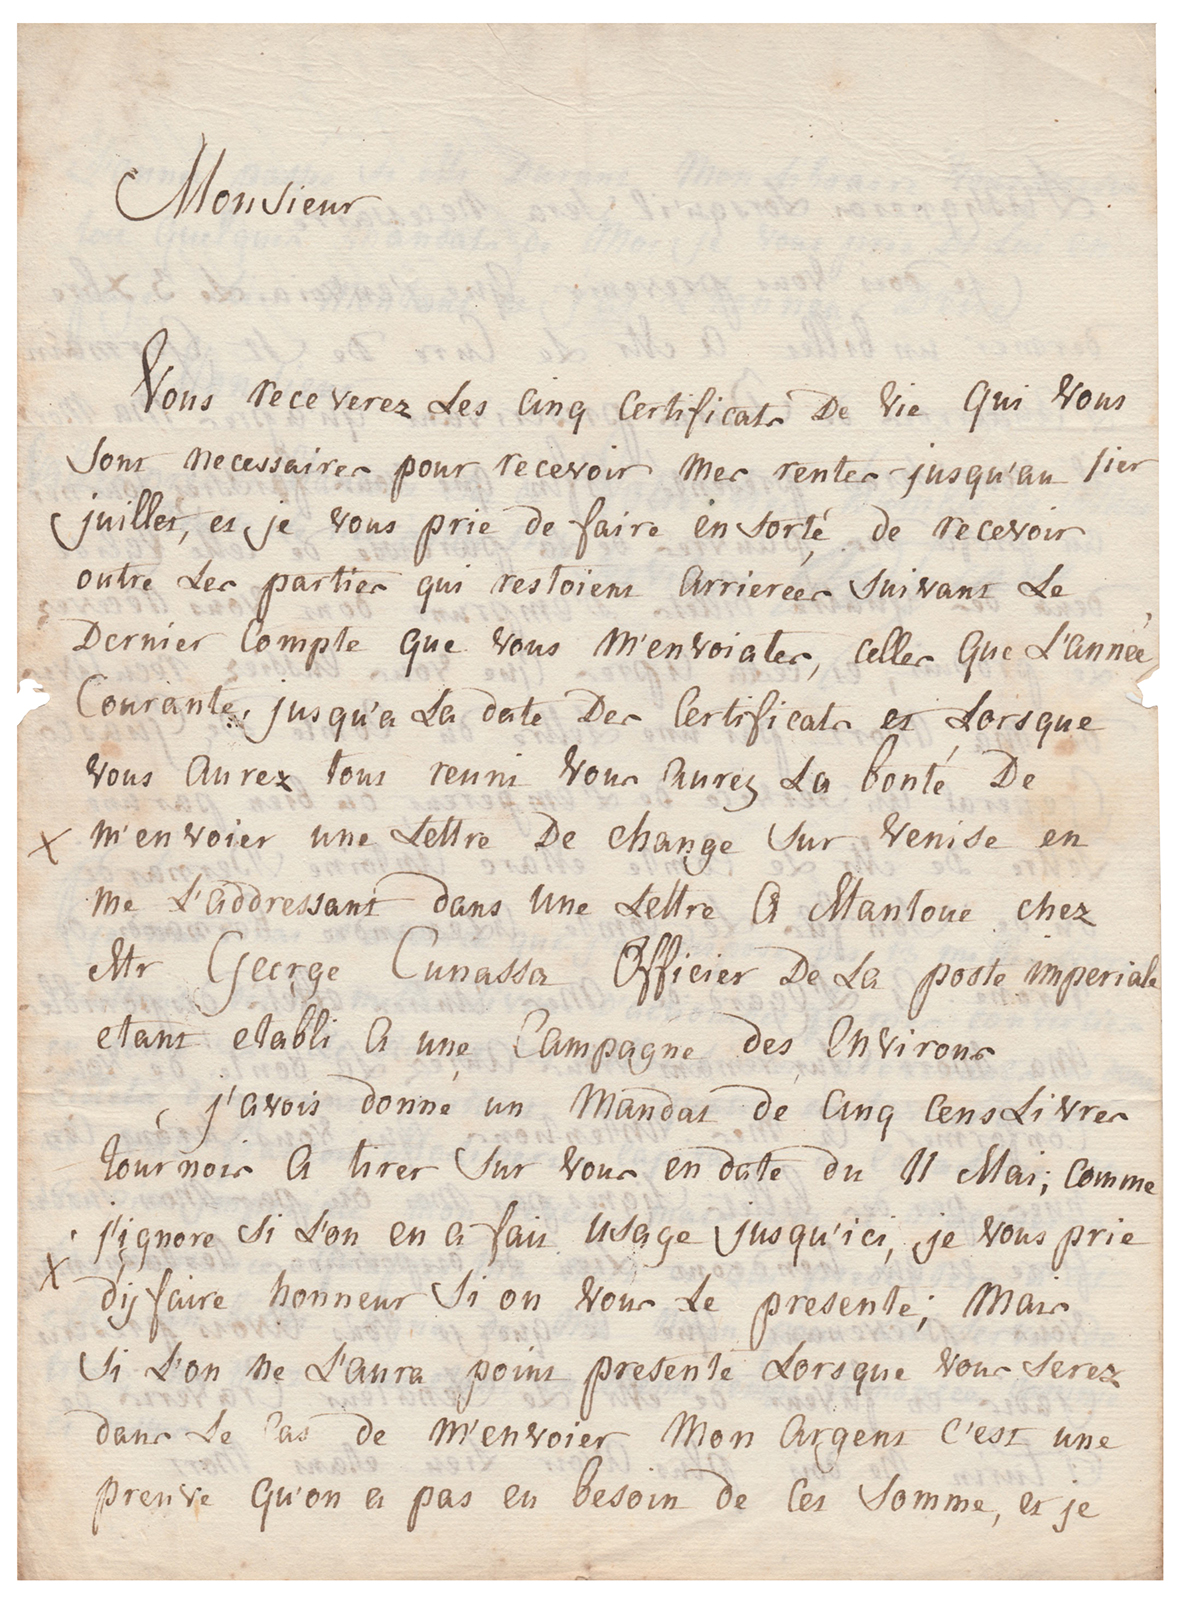 Monsieur
Vous receverez Les cinq certificats De vie qui vous
sont necessaires pour recevoir mes rentes jusqu'au 1ier
juillet, et je vous prie de faire en sorte de recevoir
outre Les parties qui restoient arrierées suivant Le
Dernier Compte que vous m'envoiates, celles que L'année
Courante, jusqu'a La date Des Certificats et Lorsque
vous aurez tout reuni vous aurez La bonté De
x m'envoier une Lettre De change sur Venise en
me L'addressant dans une Lettre a Mantoue chez
Mr George Cunassa Officier De La poste imperiale
etant etabli a une Campagne des Environs
j'avois donné un Mandat de Cinq Cens Livres
tournois a tirer sur vous en date du 11 Mai; comme
j'ignore si L'on en a fait usage jusqu'ici, je vous prie
x d'ÿ faire honneur si on vous Le presente; Mais
si L'on ne L'aura point presenté Lorsque vous serez
dans Le Cas de m'envoier Mon argent C'est une
preuve qu'on a pas eu besoin de Cet somme, et je